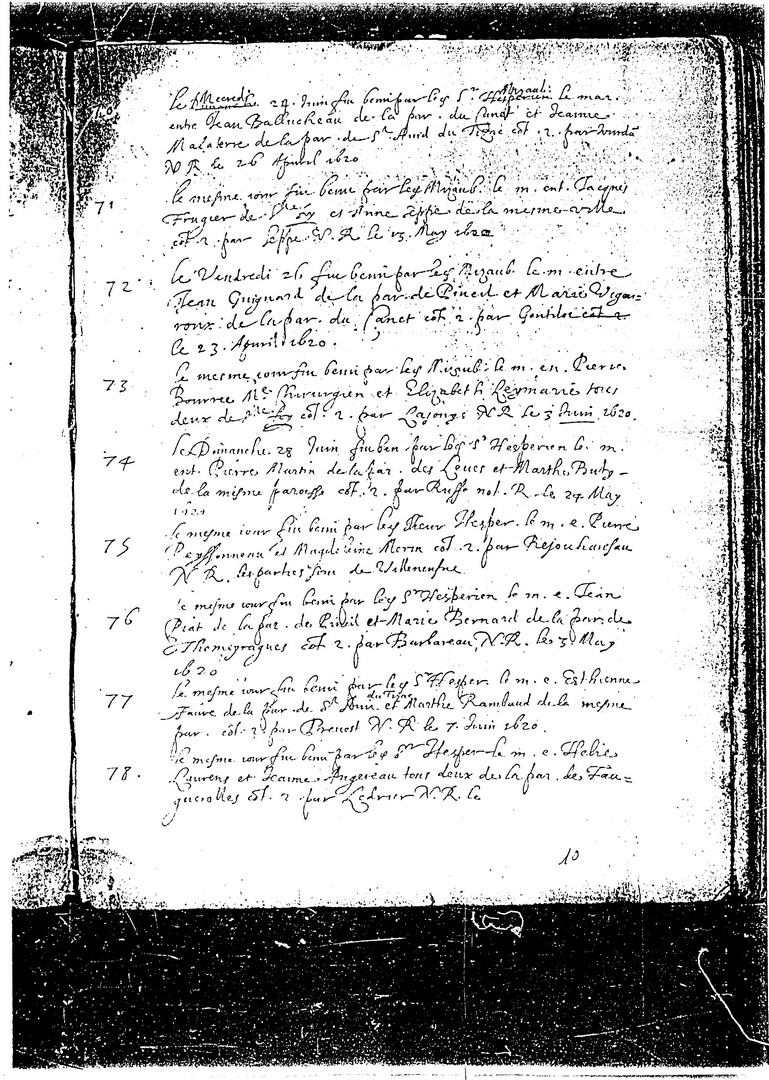 Mizaub.
le Mecredi 24 Juin fut beni par ledit Sr Hesperien le mar.
entre Jean Ballucheau de la par. du Canet et Jeanne
Malaterre de la par. de St Auid du Tizac cot. 2. par Jourda
N R le 26 Apuril 1620
71 le mesme iour fut beni par ledit Mizaub. le m. ent. Jacques
Frugier de Ste Foy et Anne Seppe de la mesme ville
cot. 2. par Seppe N. R le 13 May 1620
72 le Vendredi 26 fut beni par ledit Mizaub. le m. entre
Jean Guignard de la par. de Pineil et Marie Vigou=
roux de la par. du Canet cot. 2. par Gontilot cot 2
le 23. Apuril 1620.
73 le mesme iour fut beni par ledit Mizaub. le m. en. Pierre
Bourree Me Chirurgien et Elizabeth Leymarie tous
deux de Ste Foy cot. 2. par Lajonye N R le 3 Juin 1620.
74 le Dimanche 28 Juin fut ben. par ledit Sr Hesperien le m.
ent. Pierre Martin de la par. des Leues et Marthe Buty
de la misme paroisse cot. 2. par Russe not. R. le 24 May
1620
75 le mesme iour fut beni par ledit Sieur Hesper. le m. e. Pierre
Peyssonneau et Magdeleine Morin cot. 2. par Rejouhausau
N R. les parties sont de Villeneufue
76 le mesme iour fut beni par ledit Sr Hesperien le m. e. Jean
Piat de la par. de Pineil et Marie Bernard de la par. de
Thomeyragues cot. 2. par Barbareau N. R. le 3. May
1620
77 le mesme iour fut beni par ledit Sr Hesper. le m. e. Esthienne
du Tizac
Faure de la par. de St Auid et Marthe Rambaud de la mesme
par. cot. 2. par Preuost N. R le 7. Juin 1620.
78. le mesme iour fut beni par ledit Sr Hesper le m. e. Helie
Laurens et Jeanne Angereau tous deux de la par. de Fau=
guerolles cot. 2. par Ledrier N. R. le
10